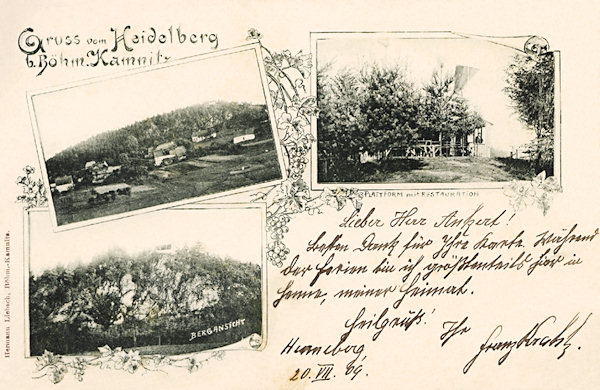 Gruss vom Heidelberg
b. Böhm. Kamnitz
PLATTFORM mit RESTAURATION
BERGANSICHT
Hermann Liebsch, Böhm.-Kamnitz.
Lieber Herr Ankert!
besten Dank für Ihre Karte. Während
der Ferien bin ich größtenteils hier in
Henne, meiner Heimat.
Heilgruß!
Ihr
Henneberg
20. VII. 09.
Franz